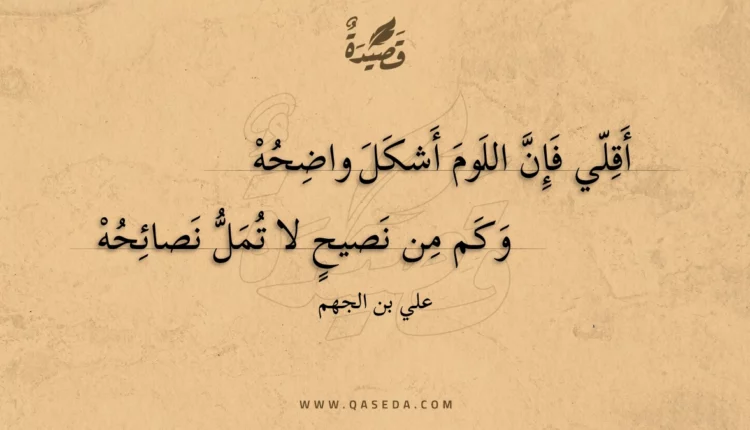 قَصِيدَةٌ
أَقِلّي فَإِنَّ اللَومَ أَشكَلَ واضِحُهْ
وَكَم مِن نَصيحٍ لا تُمَلُّ نَصائِحُهْ
علي بن الجهم
WWW.QASEDA.COM